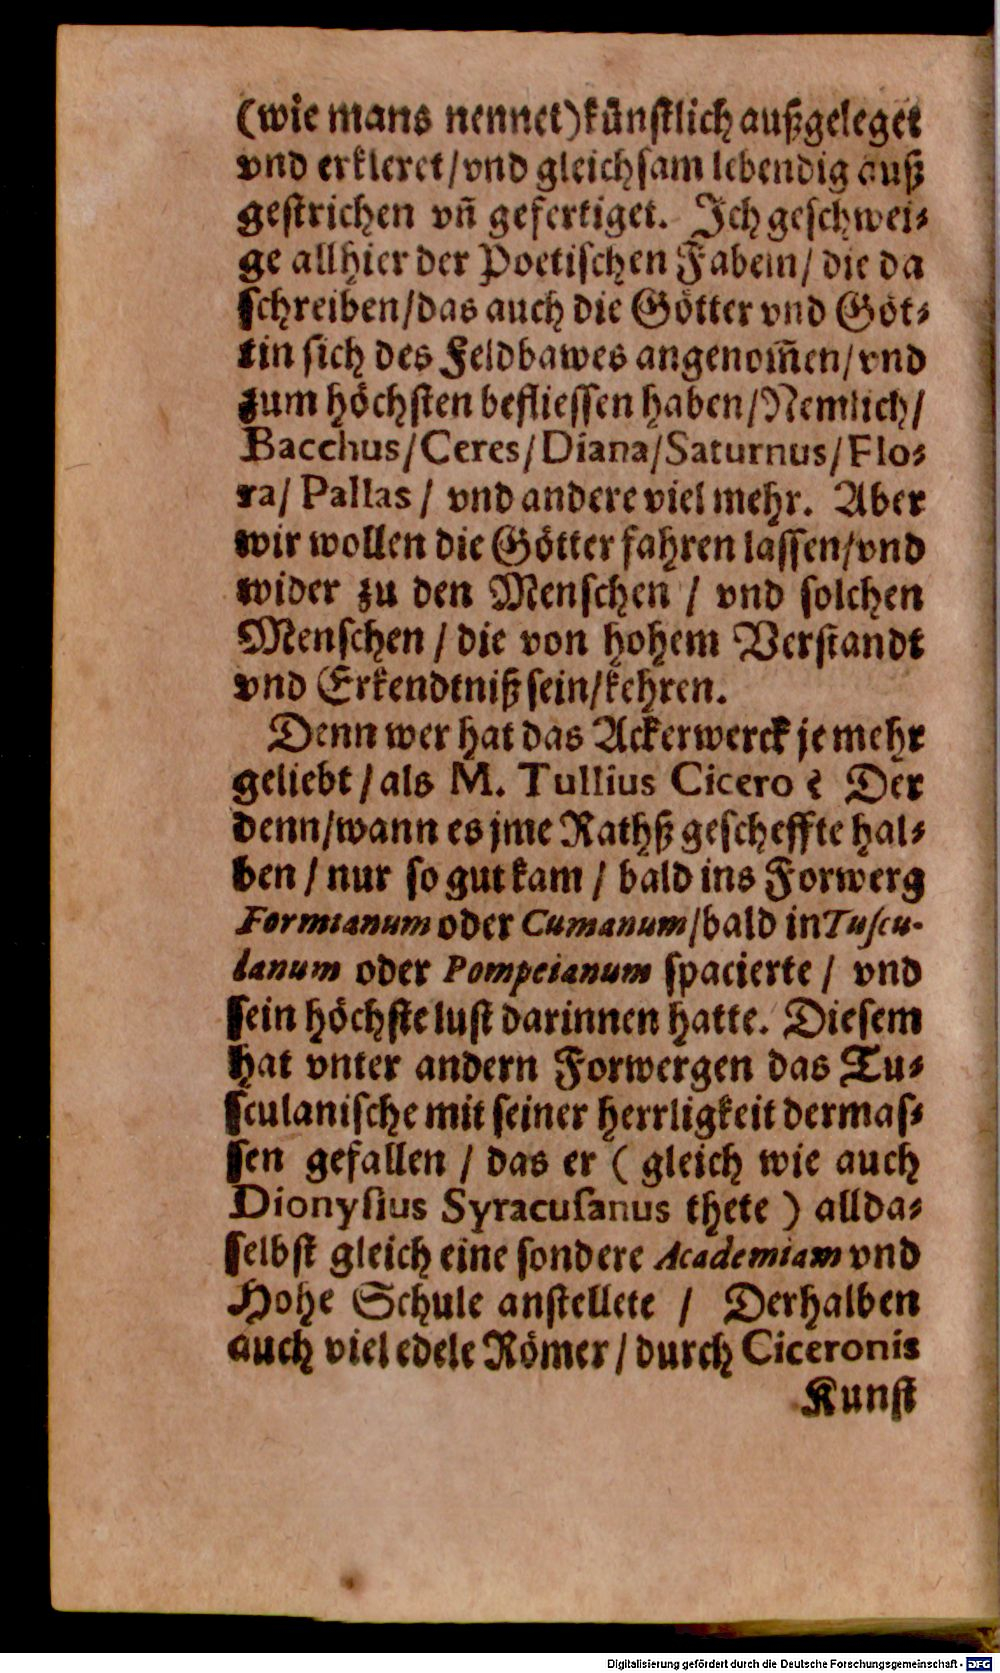 (wie mans nennet) künstlich außgeleget
vnd erkleret/vnd gleichsam lebendig auß
gestrichen vñ gefertiget. Ich geschwei-
ge allhier der Poetischen Fabeln/ die da
schreiben/das auch die Götter vnd Göt-
tin sich des Feldbawes angenom̃en/vnd
zum höchsten befliessen haben/Nemlich/
Bacchus/Ceres/Diana/Saturnus/Flo-
ra/ Pallas / vnd andere viel mehr. Aber
wir wollen die Götter fahren lassen/vnd
wider zu den Menschen / vnd solchen
Menschen / die von hohem Verstandt
vnd Erkendtniß sein/kehren.
Denn wer hat das Ackerwerck je mehr
geliebt / als M. Tullius Cicero ? Der
denn/wann es jme Rathß gescheffte hal-
ben / nur so gut kam / bald ins Forwerg
Formianum oder Cumanum/bald in Tuscu-
lanum oder Pompeianum spacierte / vnd
sein höchste lust darinnen hatte. Diesem
hat vnter andern Forwergen das Tu-
sculanische mit seiner herrligkeit dermas-
sen gefallen / das er ( gleich wie auch
Dionysius Syracusanus thete ) allda-
selbst gleich eine sondere Academiam vnd
Hohe Schule anstellete / Derhalben
auch viel edele Römer / durch Ciceronis
Kunst
Digitalisierung gefördert durch die Deutsche Forschungsgemeinschaft - DFG